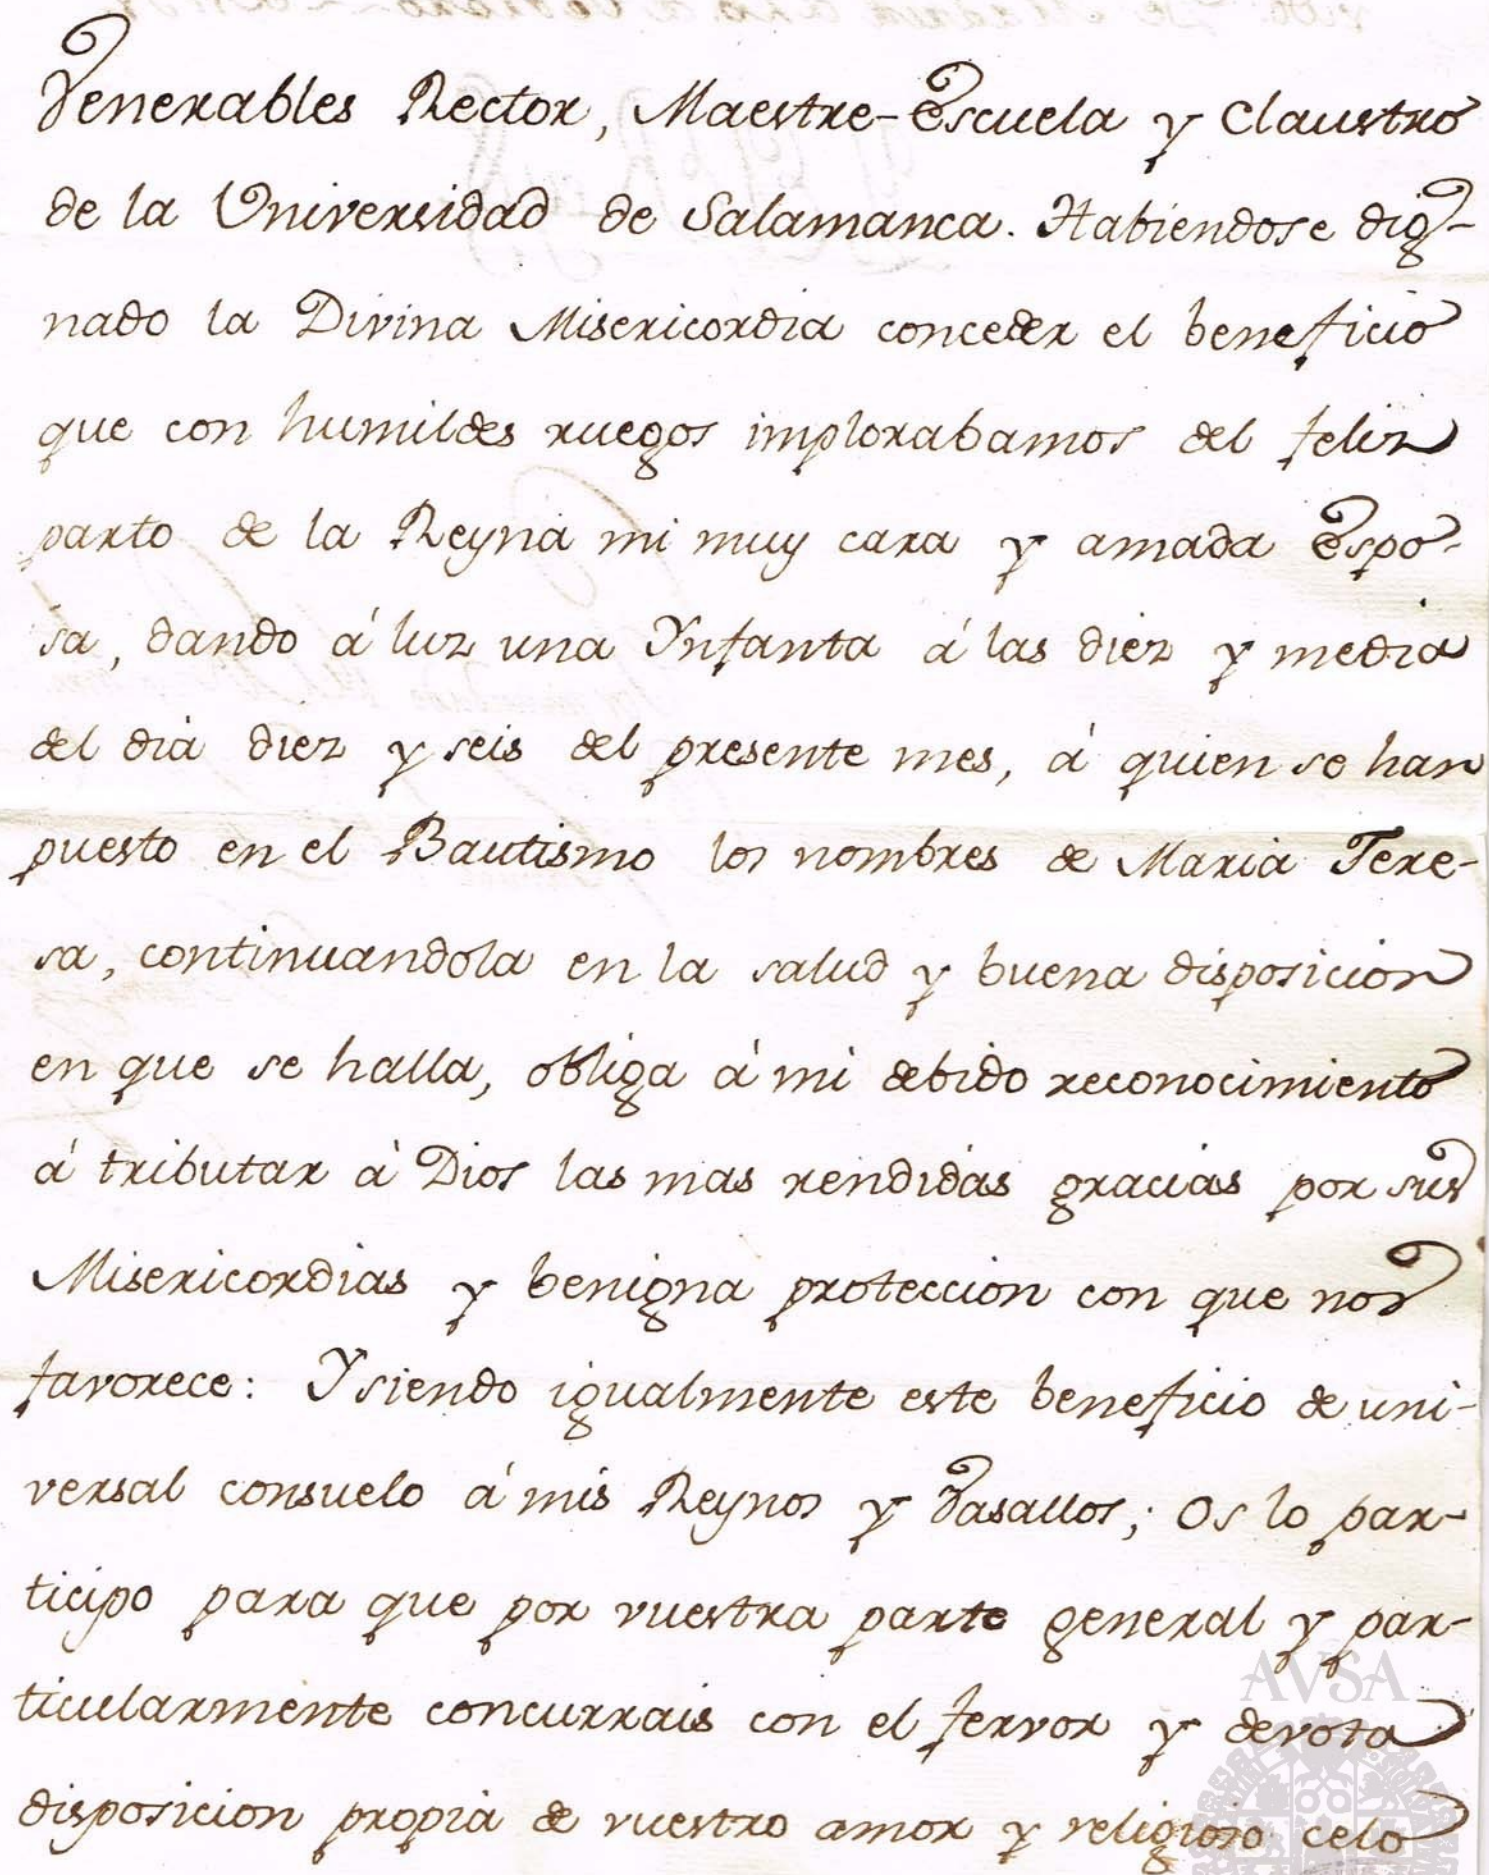 Venerables Rector, Maestre-Escuela y Claustro
de la Universidad de Salamanca. Habiendose dig-
nado la Divina Misericordia conceder el beneficio
que con humildes ruegos implorabamos del feliz
parto de la Reyna mi muy cara y amada Espo-
sa, dando á luz una Ynfanta á las diez y media
del dia diez y seis del presente mes, á quien se han
puesto en el Bautismo los nombres de Maria Tere-
sa, continuandola en la salud y buena disposicion
en que se halla, obliga á mi debido reconocimiento
á tributar à Dios las mas rendidas gracias por sus
Misericordias y benigna proteccion con que nos
favorece: Y siendo igualmente este beneficio de uni-
versal consuelo á mis Reynos y Vasallos; Os lo par-
ticipo para que por vuestra parte general y par-
ticularmente concurrais con el fervor y devota
disposicion propia de vuestro amor y religioso celo
AVSA